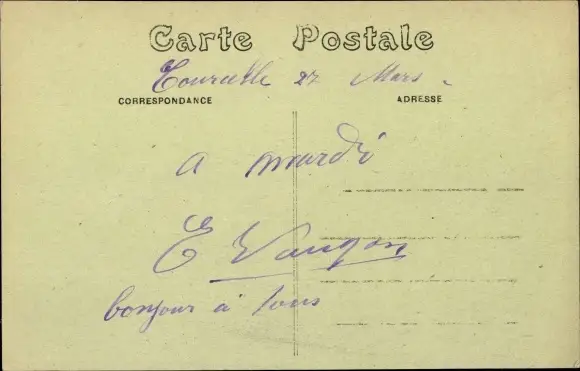 Carte Postale
27 Mars
CORRESPONDANCE ADRESSE
a mardi
E
bonjour à tous